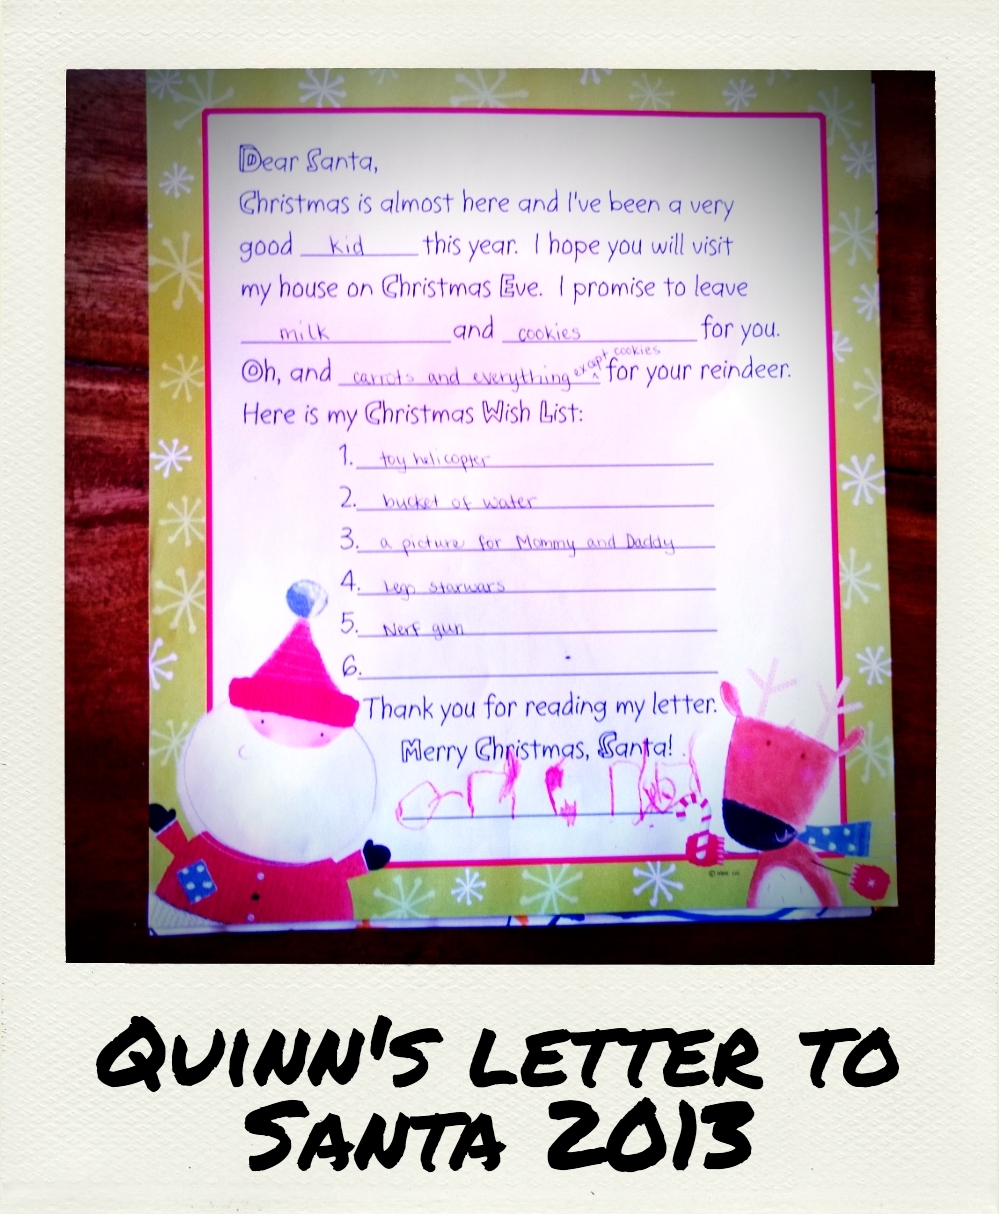 Dear Santa,
Christmas is almost here and I've been a very
good kid this year. I hope you will visit
my house on Christmas Eve. I promise to leave
milk and cookies for you.
Oh, and carrots and everything exapt cookies for your reindeer.
Here is my Christmas Wish List:
1. toy helicopter
2. bucket of water
3. a picture for Mommy and Daddy
4. Lego starwars
5. Nerf gun
6.
Thank you for reading my letter.
Merry Christmas, Santa!
Quinn's letter to
Santa 2013